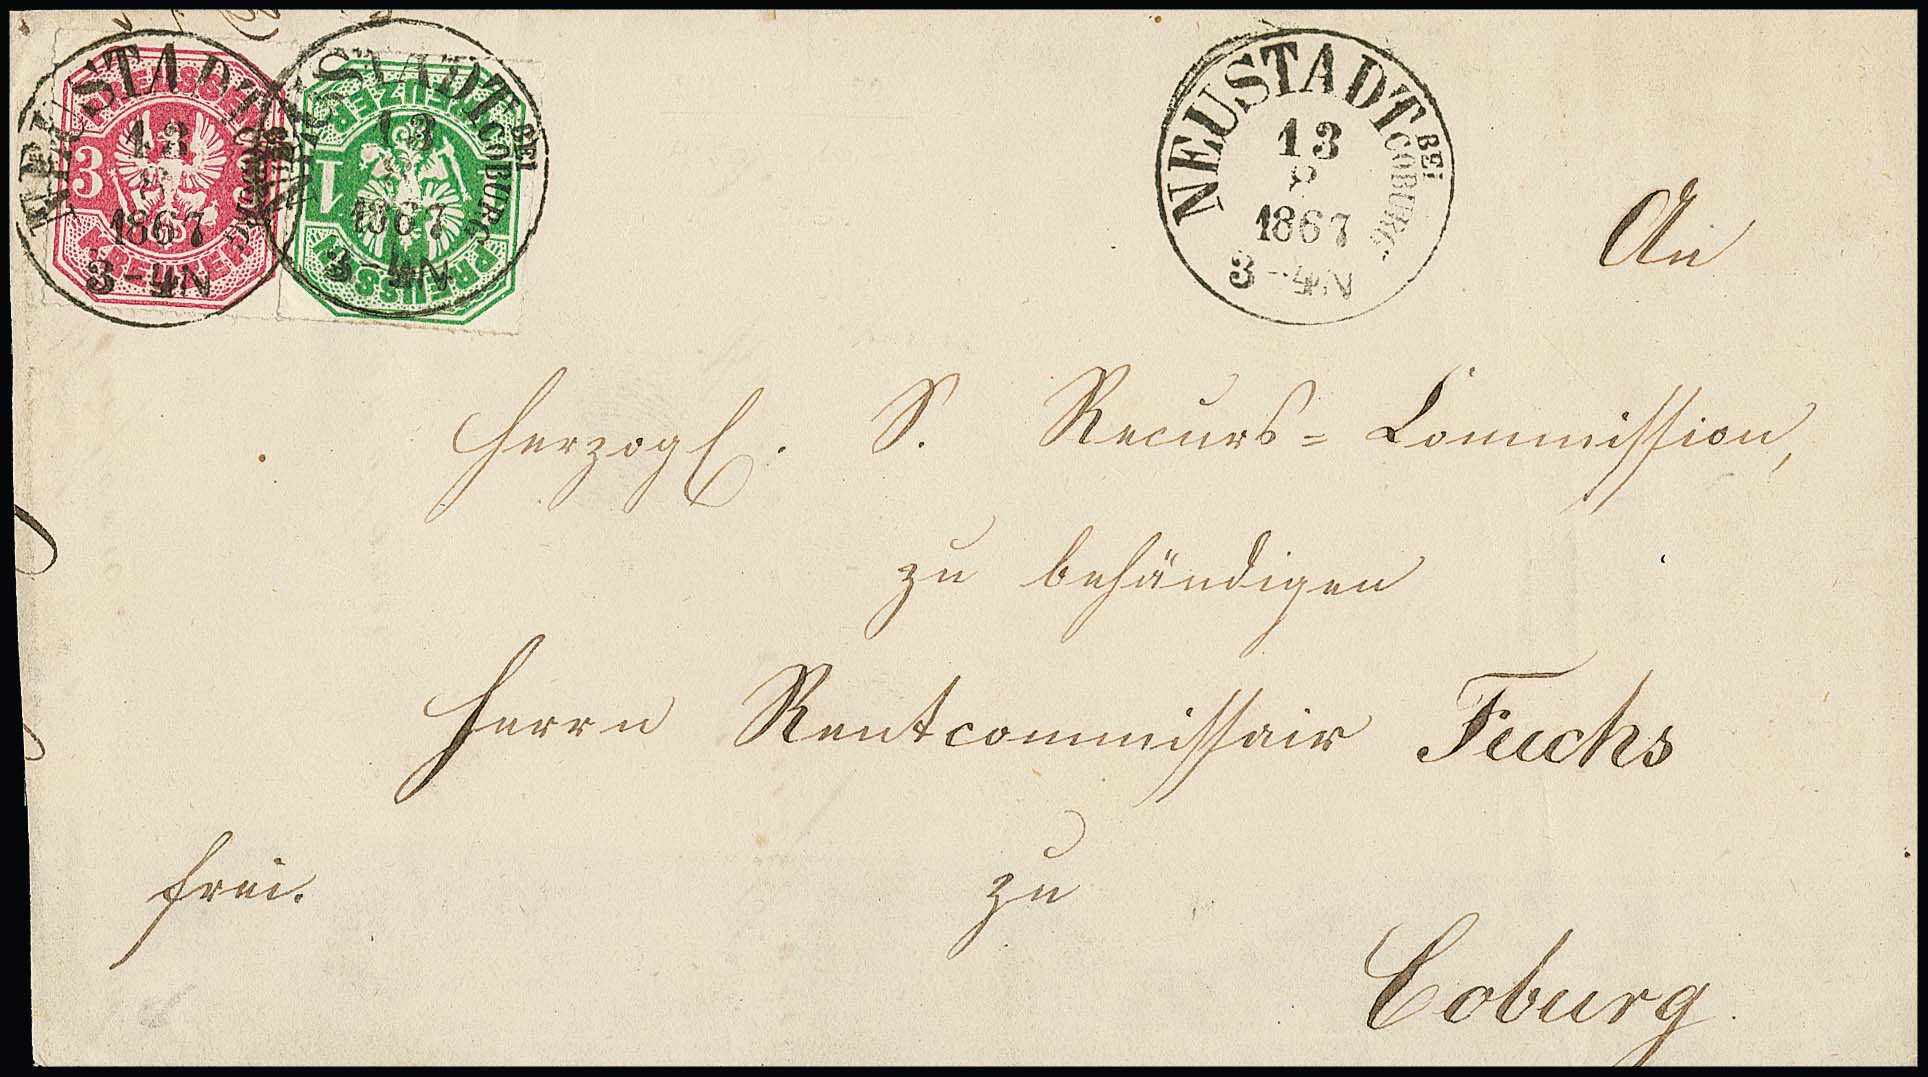 PREUSSEN
3
KREUZER
NEUSTADT BEI COBURG
13
8
1867
3-4N
PREUSSEN
1
KREUZER
NEUSTADT BEI COBURG
13
8
1867
3-4N
NEUSTADT BEI COBURG
13
8
1867
3-4N
An
Herzogl. S. Recurs=Commission,
zu behändigen
Herrn Rentcommissair Fuchs
frei. zu
Coburg.